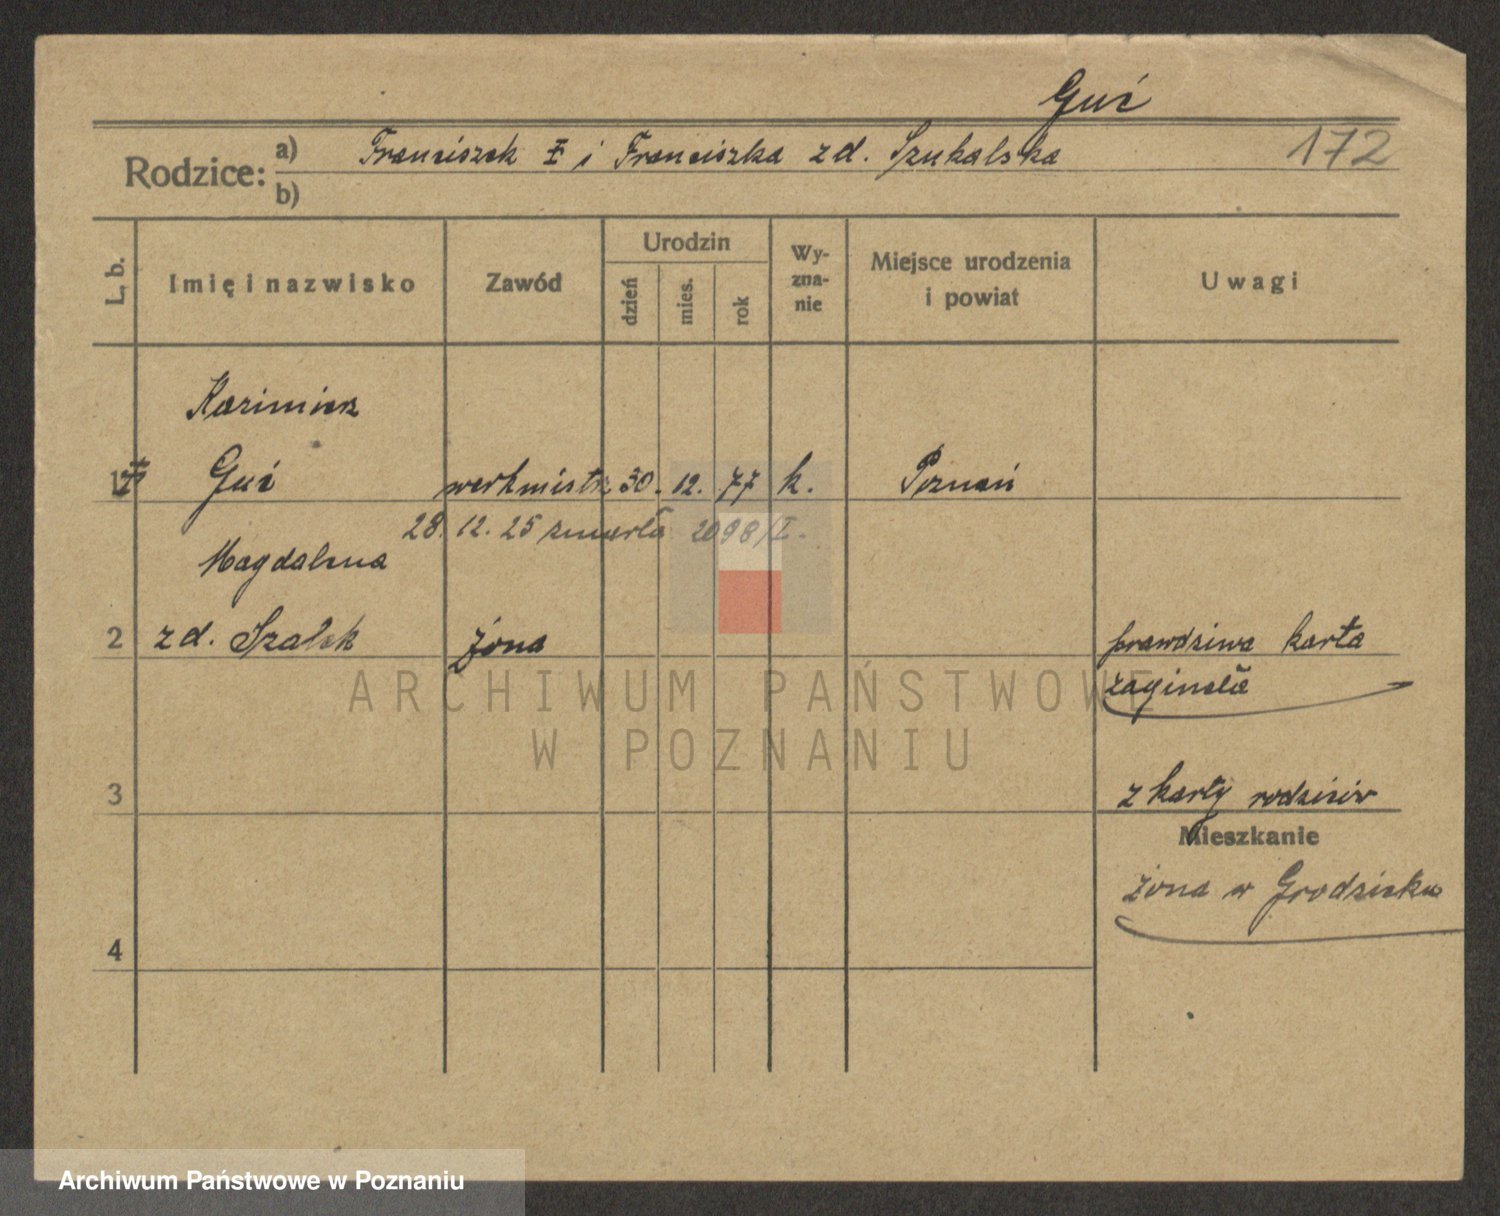 Guź
172
Rodzice: a) Franciszek i Franciszka zd. Szukalska
b)
L. b.
Imię i nazwisko
Zawód
Urodzin
dzień
mies.
rok
Wy-
zna-
nie
Miejsce urodzenia
i powiat
Uwagi
Kazimierz
1 Guź werkmistrz 30. 12. 77 k. Poznań
28. 12. 25 zmarła 2098/I.
Magdalena
2 zd. Szałek żona prawdziwa karta
zaginęła
ARCHIWUM PAŃSTWOWE
W POZNANIU
3 z karty rodziców
Mieszkanie
żona w Grodzisku
4
Archiwum Państwowe w Poznaniu